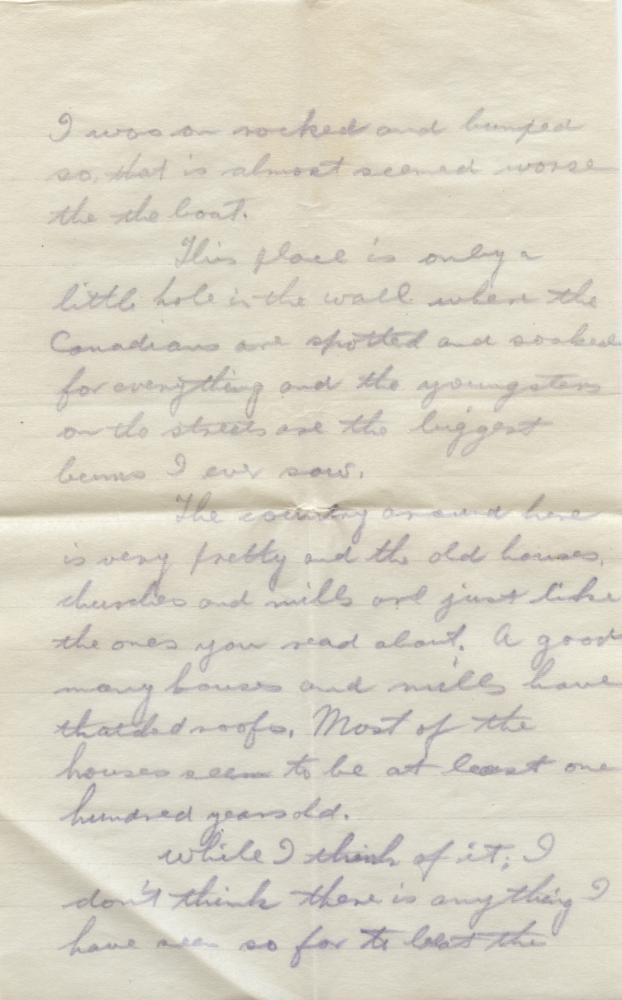 I was on rocked and bumped
so, that is almost seemed worse
the the boat.
This place is only a
little hole in the wall where the
Canadians are spotted and soaked
for everything and the youngsters
on the streets are the biggest
bums I ever saw.
The country around here
is very pretty and the old houses,
churches and mills are just like
the ones you read about. A good
many houses and mills have
thatched roofs. Most of the
houses seem to be at least one
hundred years old.
while I think of it; I
don't think there is anything I
have seen so far to beat the